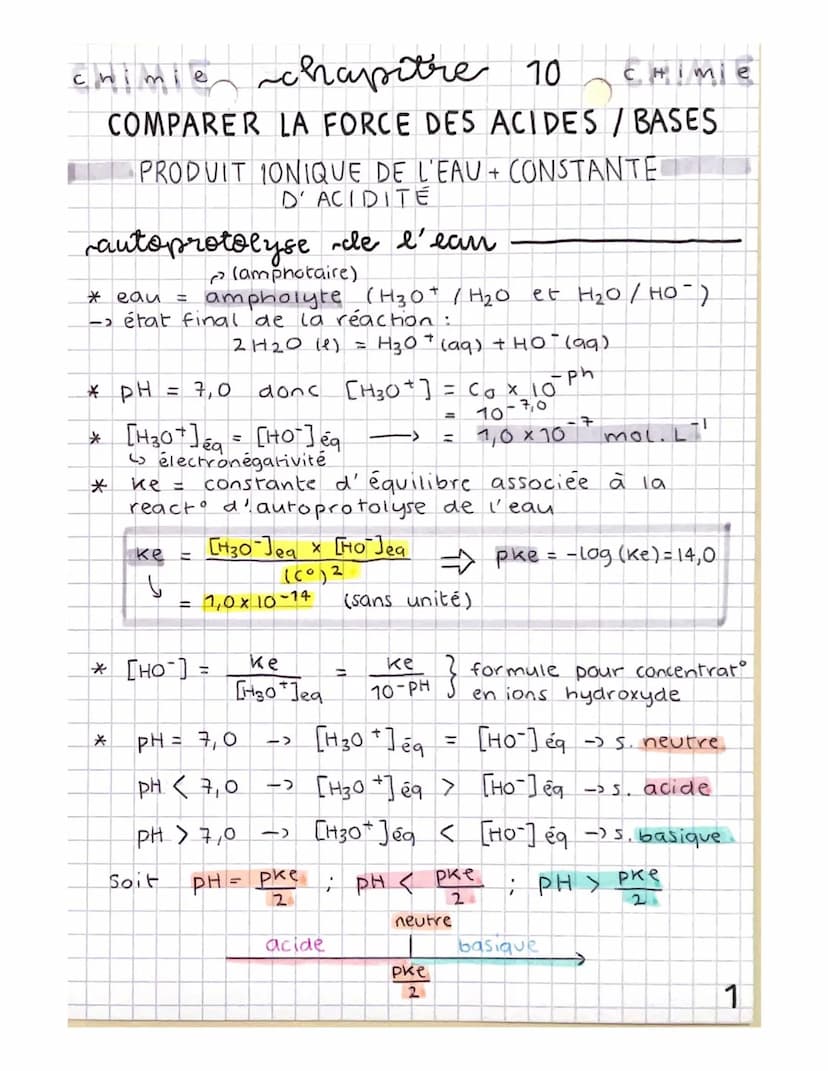 chimie chapitre 10 CHIMIE
COMPARER LA FORCE DES ACIDES / BASES
PRODUIT IONIQUE DE L'EAU + CONSTANTE
D'ACIDITÉ
autoprotolyse de l'eau
(amphotaire)
* eau = ampholyte (H3O+ / H2O et H2O / HO-)
-> état final de la réaction :
2 H2O (l) = H3O+ (aq) + HO- (aq)
* pH = 7,0 donc [H3O+] = C0 x 10^-pH
= 10^-7,0
* [H3O+]éq = [HO-]éq -> = 1,0 x 10^-7 mol.L^-1
↳ électronégativité
* Ke = constante d'équilibre associée à la
react° d'autoprotolyse de l'eau
Ke = [H3O-]eq x [HO-]eq / (C°)^2 => pKe = -log (Ke) = 14,0
= 1,0 x 10^-14 (sans unité)
* [HO-] = Ke / [H3O+]eq = Ke / 10^-pH } formule pour concentrat°
en ions hydroxyde
* pH = 7,0 -> [H3O+]éq = [HO-]éq -> s. neutre
pH < 7,0 -> [H3O+]éq > [HO-]éq -> s. acide
pH > 7,0 -> [H3O+]éq < [HO-]éq -> s. basique
Soit pH = pKe/2 ; pH < pKe/2 ; pH > pKe/2
neutre
acide basique
pKe/2
1